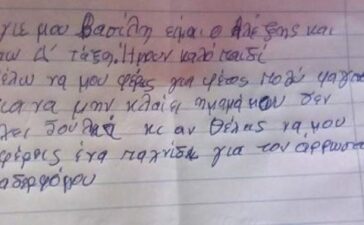 γιε μου Βασίλη είμαι ο Αλέξης και
Δ' τάξη. Ήμουν καλό παιδί
έλω να μου φέρεις για φέτος πολύ φαγη
για να μην κλαίει η μαμά μου δεν
δουλιά κι αν θέλεις να μου
φέρεις ένα παιχνίδι για τον άρρωστο
αδερφό μου